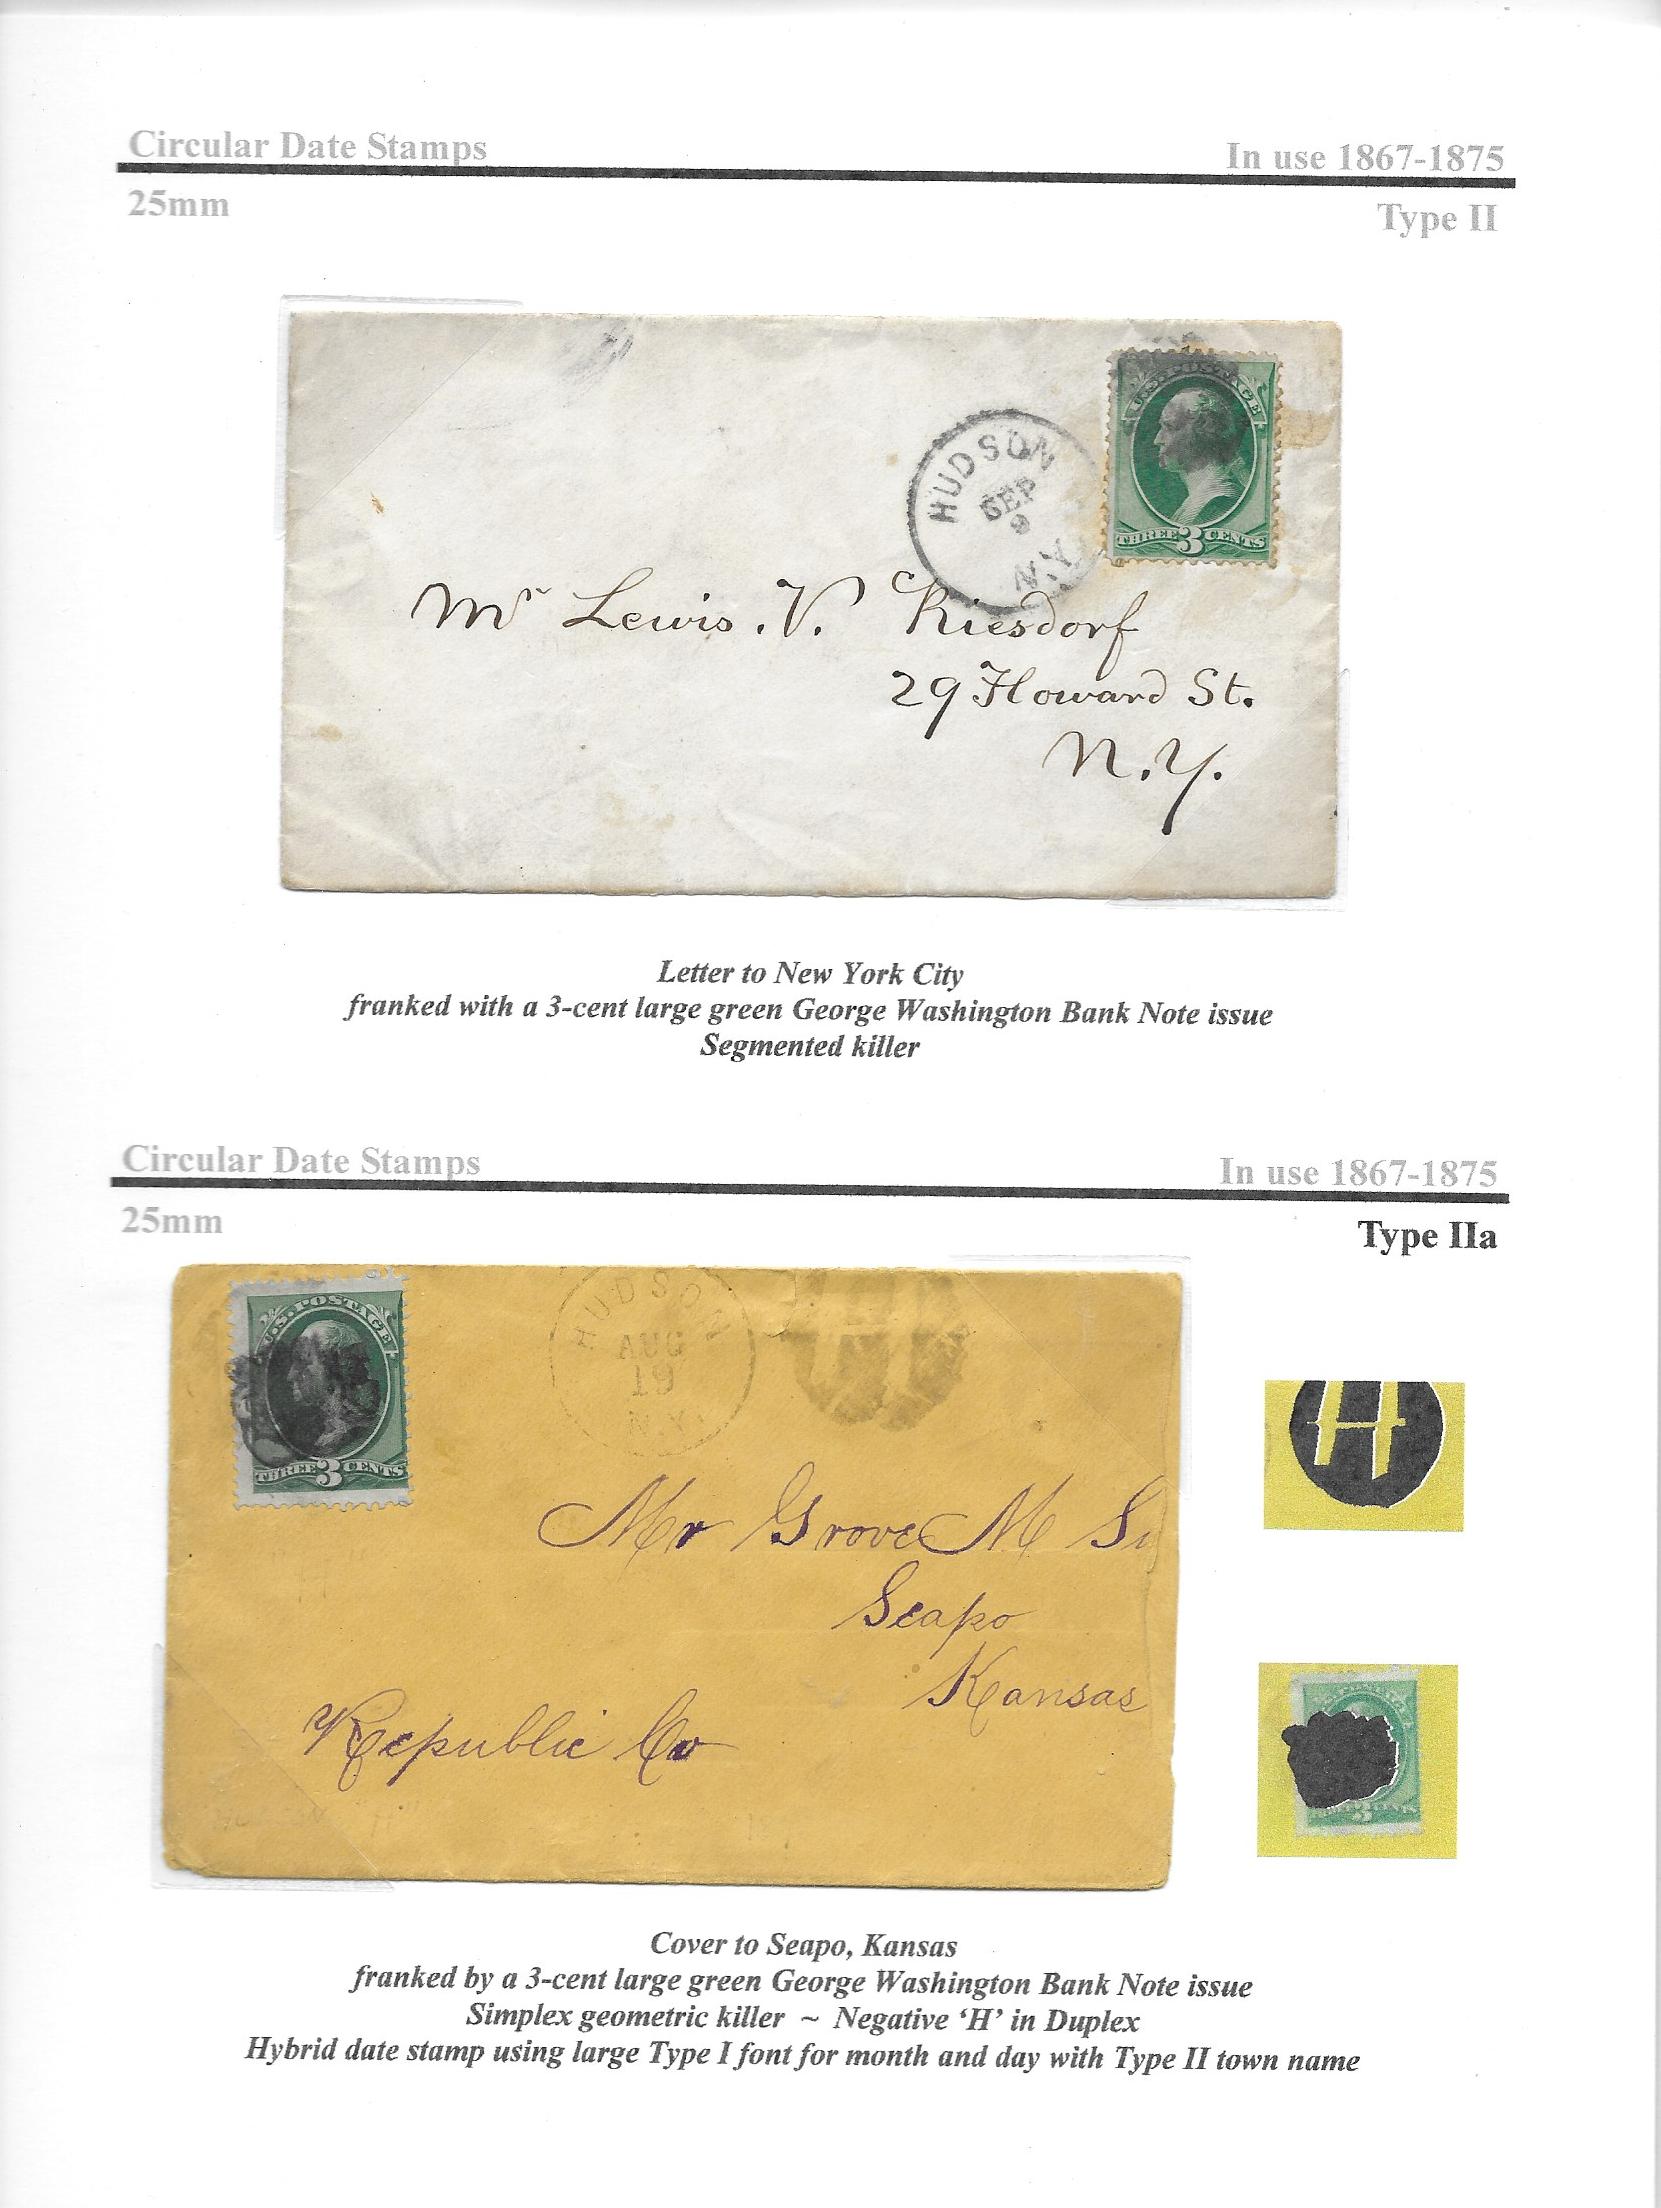 Circular Date Stamps
In use 1867-1875
25mm
Type II
U.S. POSTAGE
THREE 3 CENTS
HUDSON
SEP
9
N.Y.
Mr Lewis. V. Riesdorf
29 Howard St.
N.Y.
Letter to New York City
franked with a 3-cent large green George Washington Bank Note issue
Segmented killer
Circular Date Stamps
In use 1867-1875
25mm
Type IIa
U.S. POSTAGE
THREE 3 CENTS
HUDSON
AUG
19
N.Y.
H
Mr Grove M
Seapo
Kansas
Republic Co
3
Cover to Seapo, Kansas
franked by a 3-cent large green George Washington Bank Note issue
Simplex geometric killer ~ Negative ‘H’ in Duplex
Hybrid date stamp using large Type I font for month and day with Type II town name